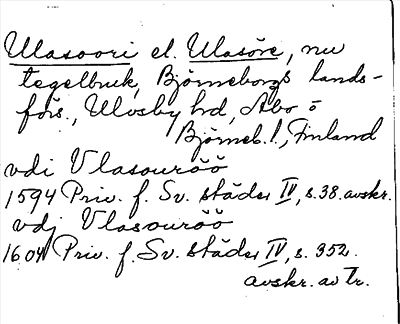 Ulasoori el. Ulasöre, nu
tegelbruk, Björneborgs lands-
förs., Ulvsby hd, Åbo o
Björneb. l., Finland
vdi Vlasouröö
1594 Priv. f. Sv. städer IV, s. 38. avskr.
vdj Vlasouröö
1604 Priv. f. Sv. städer IV, s. 352.
avskr. av Tr.